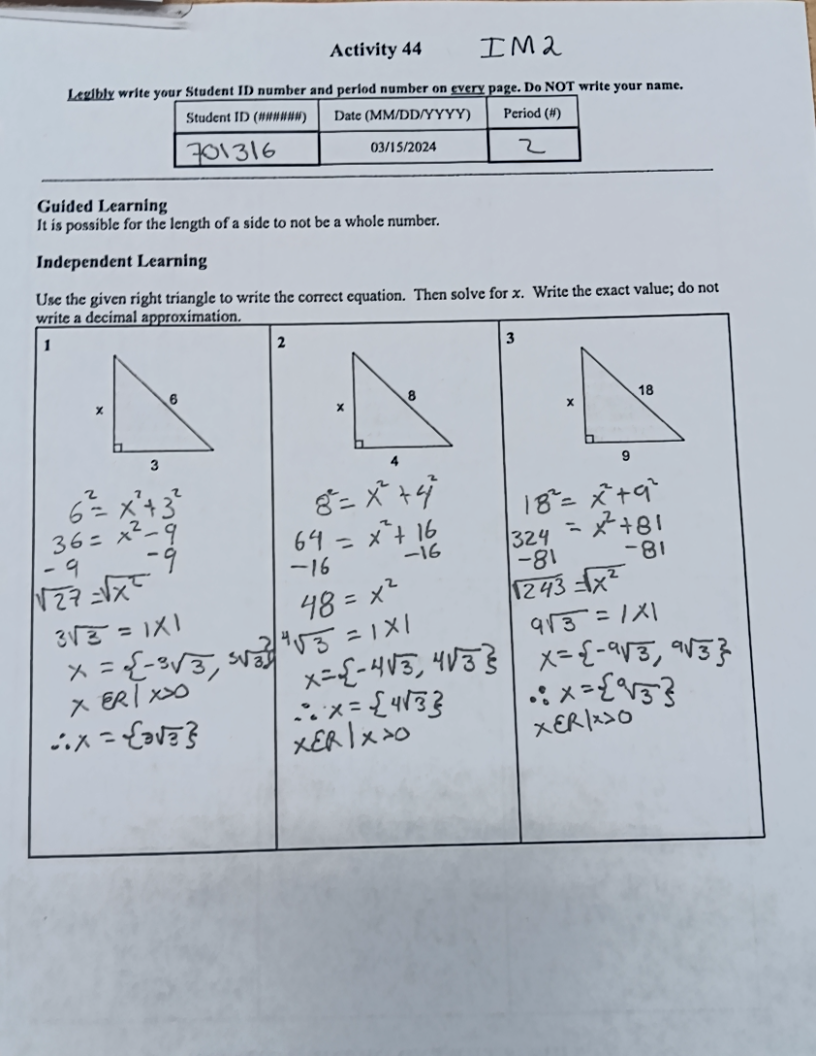 Activity 44 IM2
Legibly write your Student ID number and period number on every page. Do NOT write your name.
Student ID (######) Date (MM/DD/YYYY) Period (#)
701316 03/15/2024 2
Guided Learning
It is possible for the length of a side to not be a whole number.
Independent Learning
Use the given right triangle to write the correct equation. Then solve for x. Write the exact value; do not
write a decimal approximation.
1
x
6
3
6² = x² + 3²
36 = x² - 9
- 9 -9
√27 = √x²
3√3 = |x|
x = {-3√3, 3√3}
x ∈R | x>0
∴ x = {3√3}
2
x
8
4
8² = x² + 4²
64 = x² + 16
-16 -16
48 = x²
4√3 = |x|
x = {-4√3, 4√3}
∴ x = {4√3}
x∈R | x>0
3
x
18
9
18² = x² + 9²
324 = x² + 81
-81 -81
√243 = √x²
9√3 = |x|
x = {-9√3, 9√3}
∴ x = {9√3}
x∈R | x>0